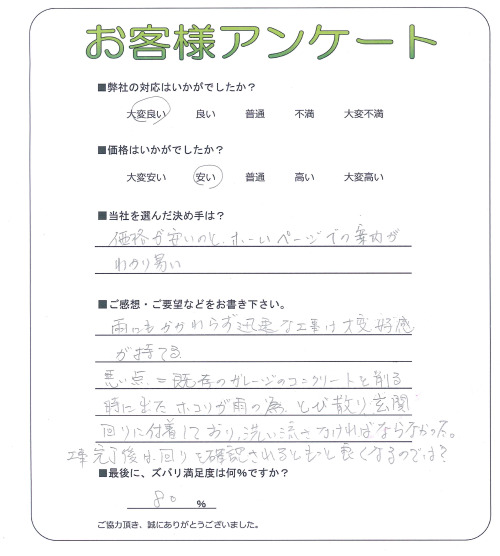 お客様アンケート
■弊社の対応はいかがでしたか？
大変良い 良い 普通 不満 大変不満
■価格はいかがでしたか？
大変安い 安い 普通 高い 大変高い
■当社を選んだ決め手は？
価格が安いのと、ホームページでの案内が
わかり易い
■ご感想・ご要望などをお書き下さい。
雨にもかかわらず迅速な工事は大変好感
が持てる
悪い点＝既存のガレージのコンクリートを削る
時に出たホコリが雨の為、とび散り、玄関
回りに付着しており、洗い流さなければならなかった。
工事完了後は、回りを確認されるともっと良くなるのでは？
■最後に、ズバリ満足度は何%ですか？
80 %
ご協力頂き、誠にありがとうございました。